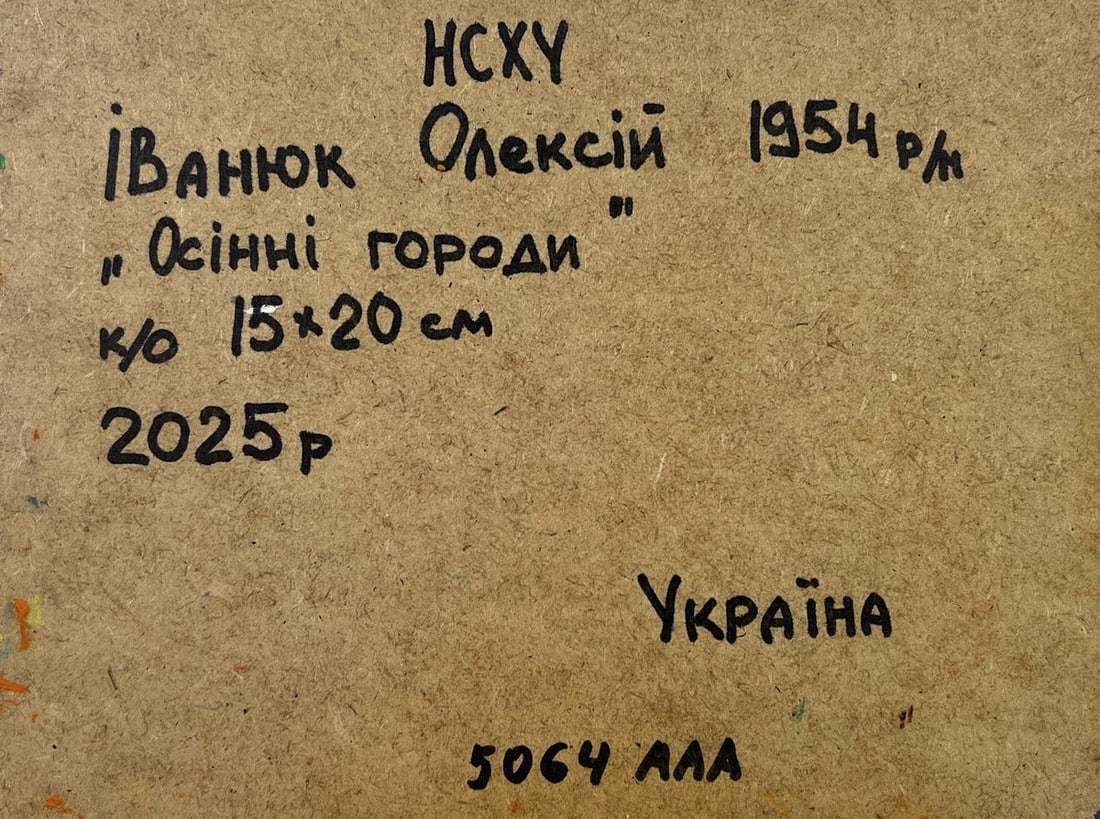 НСХУ
Іванюк Олексій 1954 р/н
„Осінні городи"
к/о 15×20 см
2025 р
Україна
5064 ААА